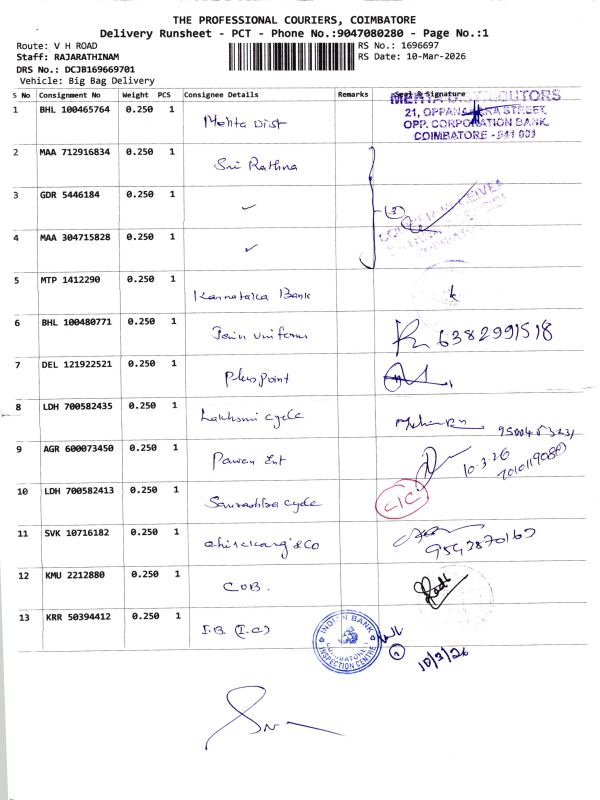 THE PROFESSIONAL COURIERS, COIMBATORE
Delivery Runsheet - PCT - Phone No.:9047080280 - Page No.:1
Route: V H ROAD RS No.: 1696697
Staff: RAJARATHINAM RS Date: 10-Mar-2026
DRS No.: DCJB169669701
Vehicle: Big Bag Delivery
S No Consignment No Weight PCS Consignee Details Remarks Seal & Signature
1 BHL 100465764 0.250 1 Mehta Dist
MEHTA DISTRIBUTORS
21, OPPANAKARA STREET,
OPP. CORPORATION BANK,
COIMBATORE - 641 001
2 MAA 712916834 0.250 1 Sri Rathna
3 GDR 5446184 0.250 1 ✓ (3)
4 MAA 304715828 0.250 1 ✓
5 MTP 1412290 0.250 1 Karnataka Bank
6 BHL 100480771 0.250 1 Jain Uniforms 6382991518
7 DEL 121922521 0.250 1 Plus Point
8 LDH 700582435 0.250 1 Lakhsmi Cycle
9 AGR 600073450 0.250 1 Pawan Ent 10.3.26
10 LDH 700582413 0.250 1 Saurashtra Cycle CIC
11 SVK 10716182 0.250 1 & Co
12 KMU 2212880 0.250 1 CUB.
13 KRR 50394412 0.250 1 I.B. (I.C)
INDIAN BANK
COIMBATORE
INSPECTION CENTRE
10/3/26